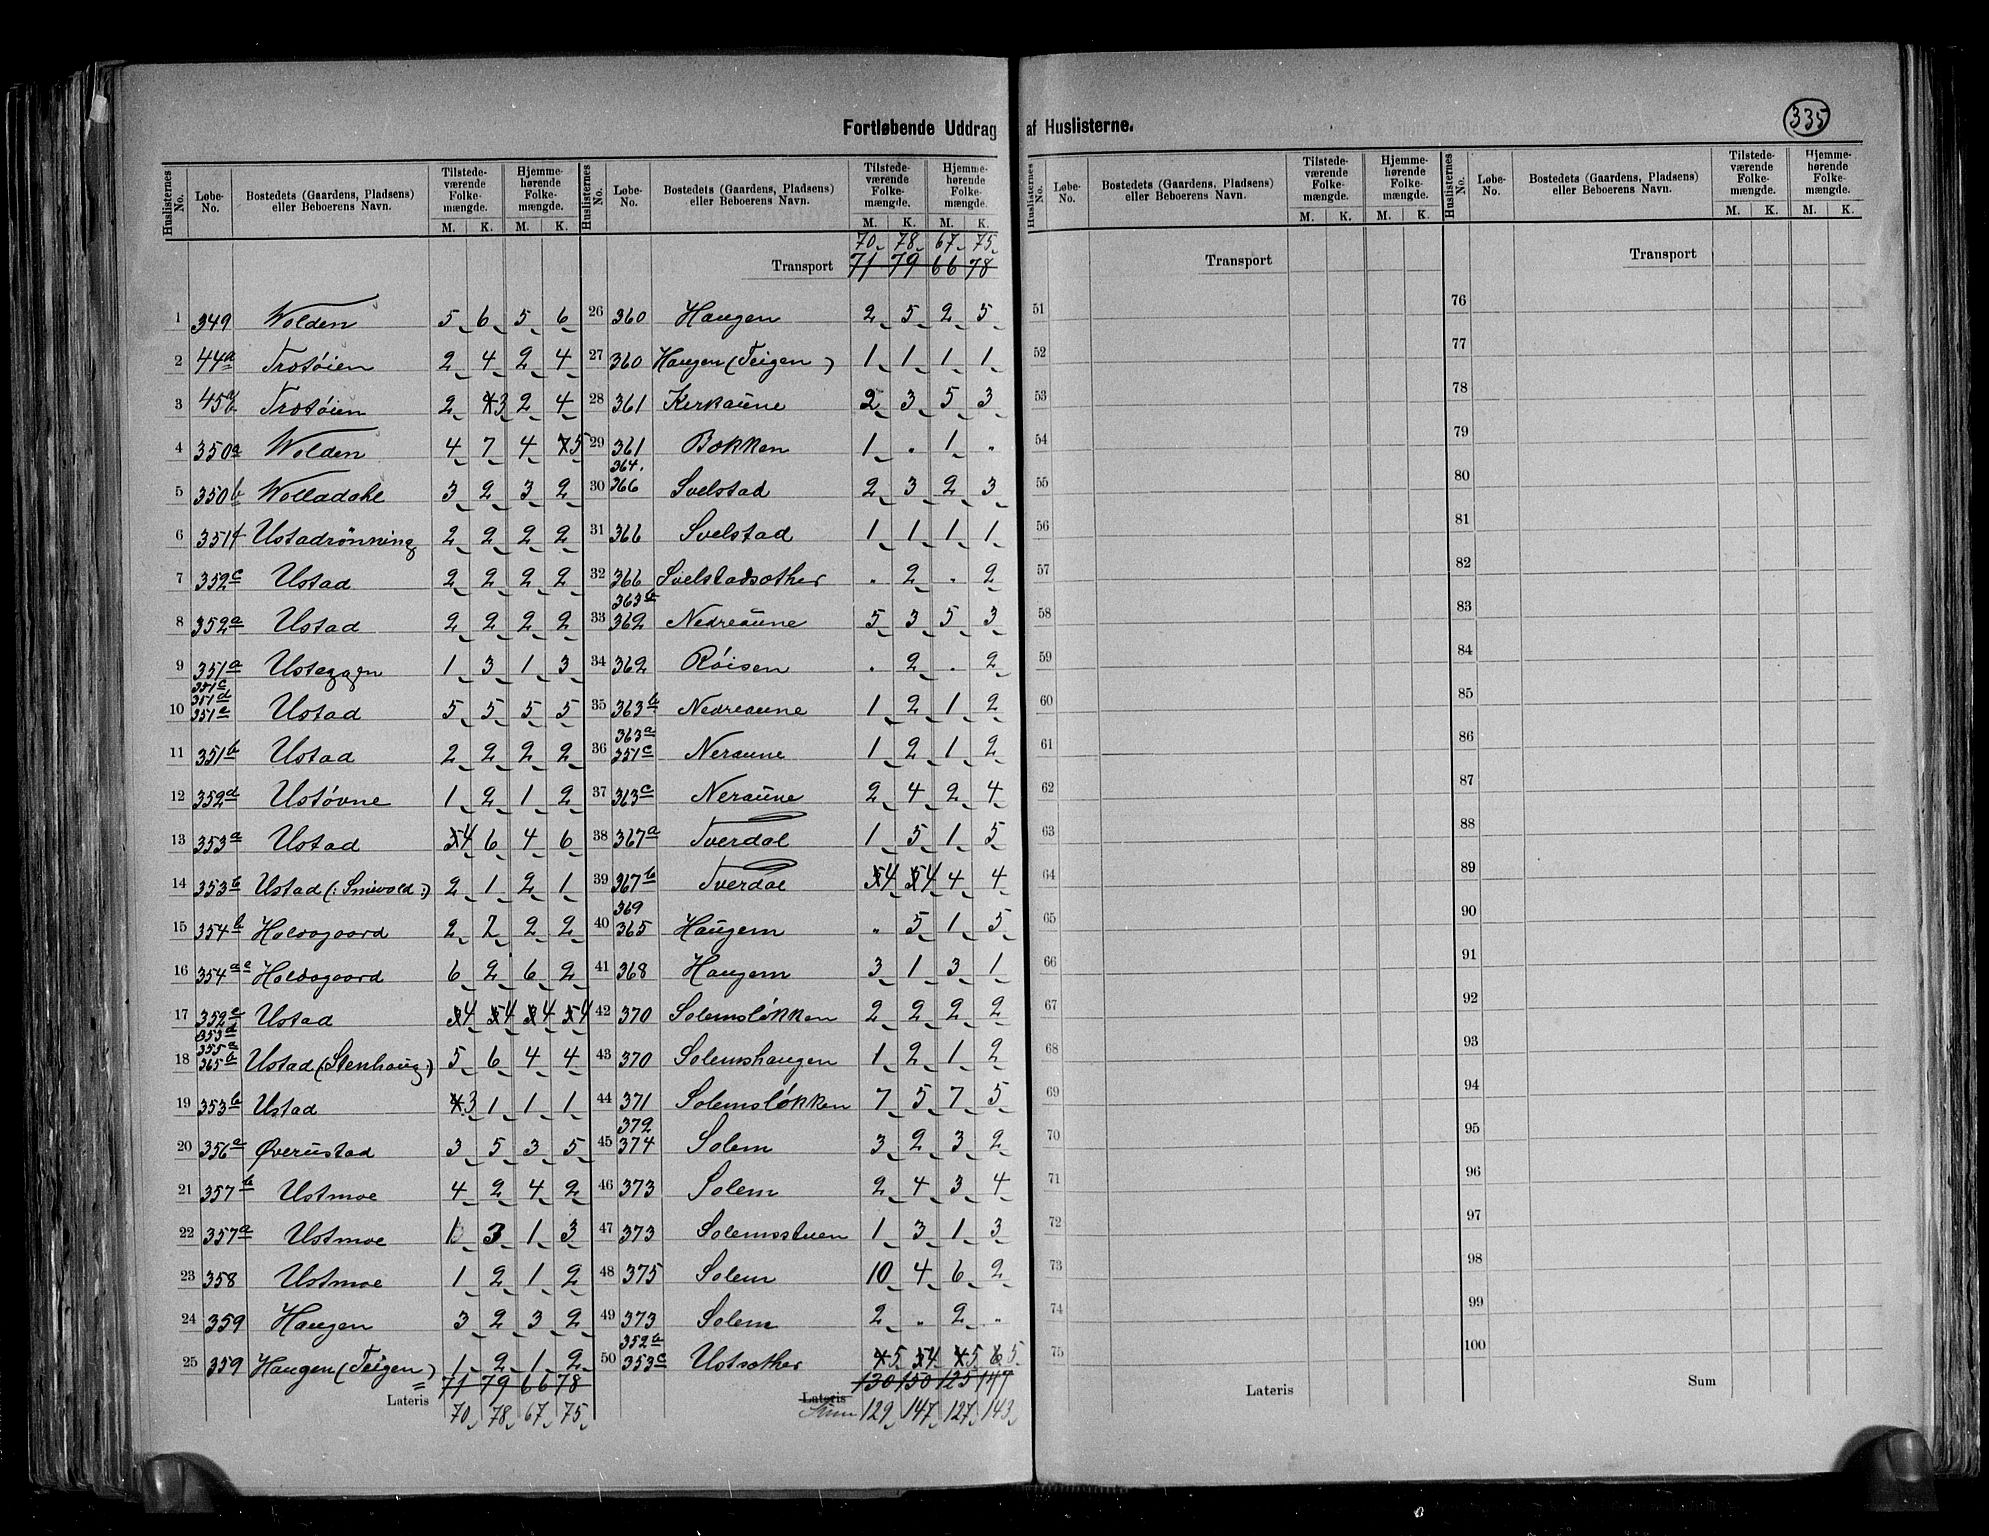 Fortløbende Uddrag af Huslisterne.
335
Huslisternes No. Løbe-No. Bostedets (Gaardens, Pladsens) eller Beboerens Navn. Tilstedeværende Folkemængde. Hjemmehørende Folkemængde.
M. K. M. K.
1 349 Wolden 5 6 5 6
2 44a Trotøien 2 4 2 4
3 45 Trotøien 2 3 2 4
4 350a Wolden 4 7 4 5
5 350b Wolladahl 3 2 3 2
6 351f Ustadrönning 2 2 2 2
7 352c Ustad 2 2 2 2
8 352a Ustad 2 2 2 2
9 351a Usteggen 1 3 1 3
10 351c 351d 351e Ustad 5 5 5 5
11 351b Ustad 2 2 2 2
12 352d Ustøvne 1 2 1 2
13 353a Ustad 4 6 4 6
14 353b Ustad (: Smivold :) 2 1 2 1
15 354b Holdsgaard 2 2 2 2
16 354a Holdsgaard 6 2 6 2
17 352e 353d Ustad 4 4 4 4
18 355a 365b Ustad (Stenhaug :) 5 6 4 4
19 353b Ustad 3 1 1 1
20 356a Øverustad 3 5 3 5
21 357b Ustmoe 4 2 4 2
22 357a Ustmoe 1 3 1 3
23 358 Ustmoe 1 2 1 2
24 359 Haugen 3 2 3 2
25 359 Haugen (Teigen) 1 2 1 2
71 79 66 78
Lateris 70 78 67 75
Huslisternes No. Løbe-No. Bostedets (Gaardens, Pladsens) eller Beboerens Navn. Tilstedeværende Folkemængde. Hjemmehørende Folkemængde.
M. K. M. K.
70 78 67 75
Transport 71 79 66 78
26 360 Haugen 2 5 2 5
27 360 Haugen (Teigen) 1 1 1 1
28 361 Kerkaune 2 3 5 3
29 361 Bakken 1 " 1 "
30 364. 366 Svelstad 2 3 2 3
31 366 Svelstad 1 1 1 1
32 366 Svelstadsether " 2 " 2
33 363b 362 Nedreaune 5 3 5 3
34 362 Røisen " 2 " 2
35 363b Nedreaune 1 2 1 2
36 363a 351c Neraune 1 2 1 2
37 363c Neraune 2 4 2 4
38 367a Tverdal 1 5 1 5
39 367b Tverdal 4 4 4 4
40 369 365 Haugem " 5 1 5
41 368 Haugem 3 1 3 1
42 370 Solemsløkken 2 2 2 2
43 370 Solemshaugen 1 2 1 2
44 371 Solemsløkken 7 5 7 5
45 372 374 Solem 3 2 3 2
46 373 Solem 2 4 3 4
47 373 Solemsstuen 1 3 1 3
48 375 Solem 10 4 6 2
49 373 Solem 2 " 2 "
50 352b 353c Ustsether 5 4 5 5
130 150 125 147
Lateris
Sum 129 147 127 143
Huslisternes No. Løbe-No. Bostedets (Gaardens, Pladsens) eller Beboerens Navn. Tilstedeværende Folkemængde. Hjemmehørende Folkemængde.
M. K. M. K.
Transport
51
52
53
54
55
56
57
58
59
60
61
62
63
64
65
66
67
68
69
70
71
72
73
74
75
Lateris
Huslisternes No. Løbe-No. Bostedets (Gaardens, Pladsens) eller Beboerens Navn. Tilstedeværende Folkemængde. Hjemmehørende Folkemængde.
M. K. M. K.
Transport
76
77
78
79
80
81
82
83
84
85
86
87
88
89
90
91
92
93
94
95
96
97
98
99
100
Sum